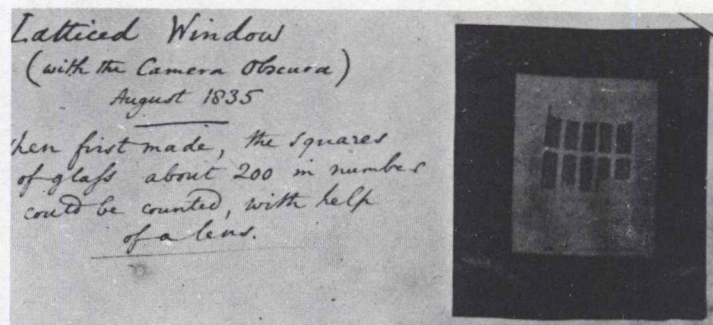 Latticed Window
(with the Camera Obscura)
August 1835
hen first made, the squares
of glaſs about 200 in number
could be counted, with help
of a lens.